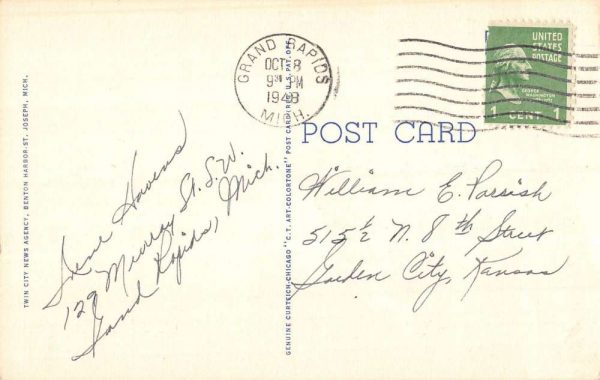 TWIN CITY NEWS AGENCY, BENTON HARBOR-ST. JOSEPH, MICH.
Irene Havens
129 Murray St. S.W.
Grand Rapids, Mich.
GENUINE CURTEICH-CHICAGO "C.T. ART-COLORTONE" POST CARD (REG. U.S. PAT. OFF.
GRAND RAPIDS
OCT 8
9 PM
1948
MICH.
UNITED
STATES
POSTAGE
GEORGE
WASHINGTON
1 CENT 1
POST CARD
William E. Parish
515½ N. 8th Street
Garden City, Kansas